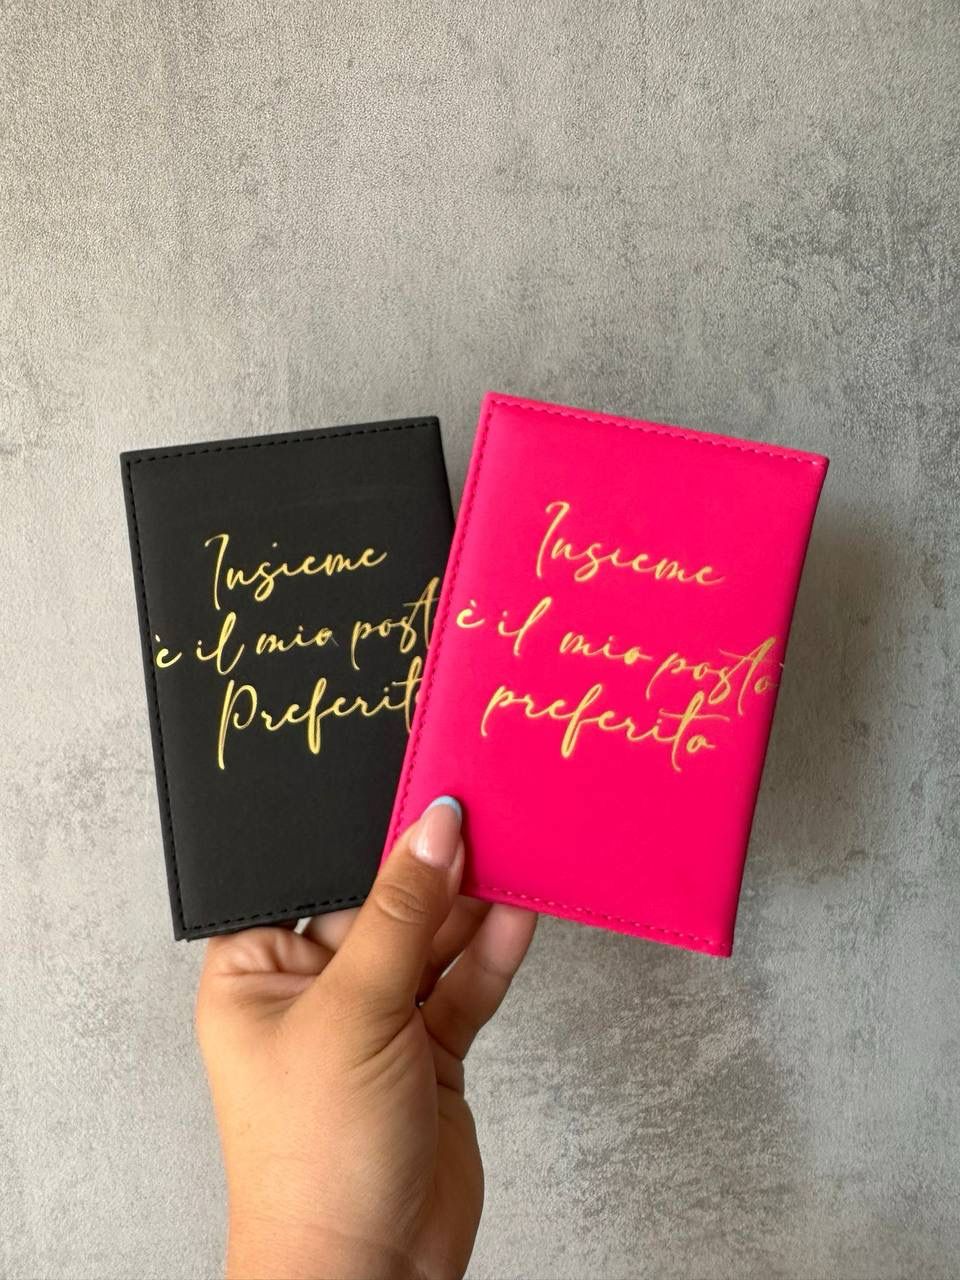 Insieme
è il mio post
Preferito
Insieme
è il mio posto
preferito